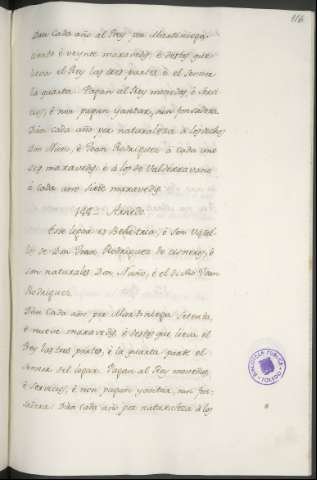 Dan cada año al Rey por Martiniega
ciento è veynte maravedis, è destos que
lieva el Rey las tres partes è el Sennor
la quarta. Pagan al Rey monedas, è Servi
cios, è non pagan yantar, nin fonsadera
Dan cada año por naturaleza à los dichos
Don Nuño, è Joan Rodriguez à cada uno
seis maravedis è à los de Valderravano
à cada uno siete maravedis
Este logar es Behetria, è son Vasa
llos de Don Joan Rodriguez de cisneros, è
son naturales Don Nuño, è el dicho Joan
Rodriguez
Dan cada año por Martiniega Setenta,
è nueve maravedis, è destos que lieva el
Rey las tres partes, è la quarta parte el
Sennor del logar. Pagan al Rey monedas,
è Servicios, è non pagan yantar, nin fon-
sadera. Dan cada año por naturaleza à los
BIBLIOTECA PUBLICA
TOLEDO